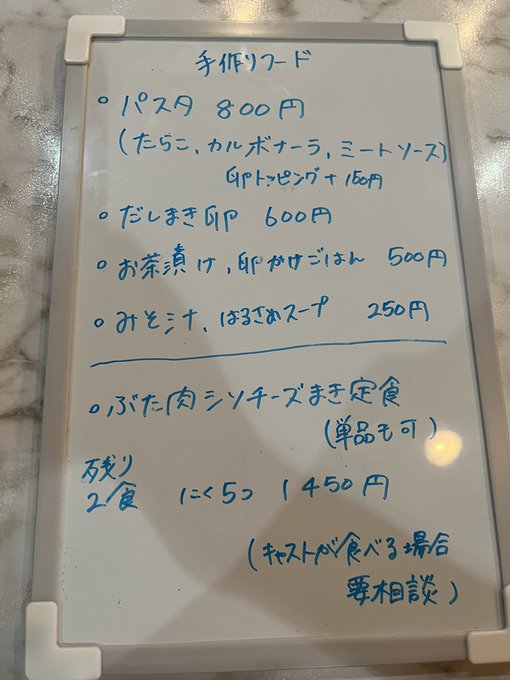 手作りフード
° パスタ 800円
(たらこ、カルボナーラ、ミートソース)
卵トッピング+150円
° だしまき卵 600円
° お茶漬け、卵かけごはん 500円
° みそ汁、はるさめスープ 250円
° ぶた肉シソチーズまき定食
(単品も可)
残り
2食 にく5つ 1450円
(キャストが食べる場合
要相談)